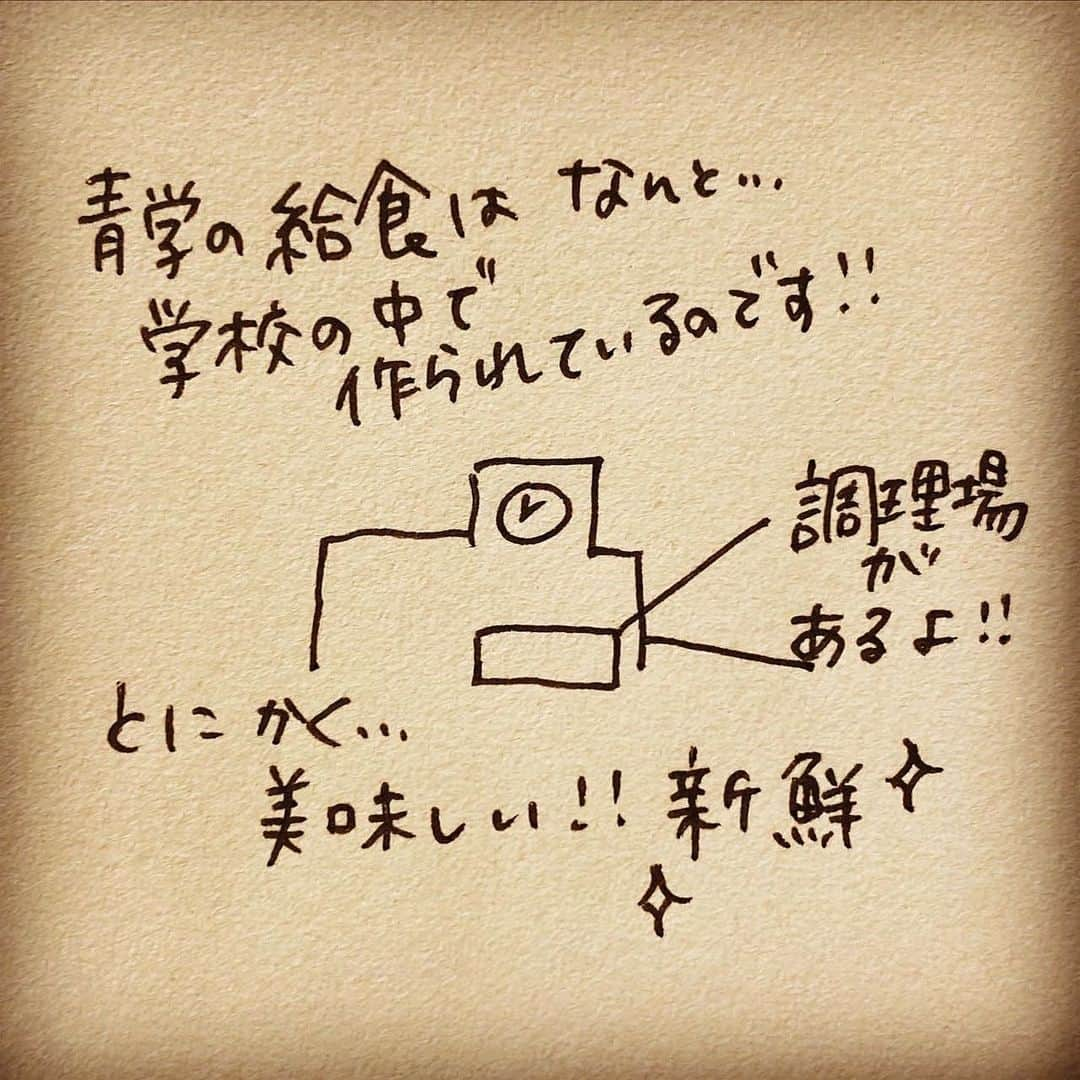 青学の給食は なんと…
学校の中で
作られているのです!!
調理場
が
あるよ!!
とにかく…
美味しい!! 新鮮